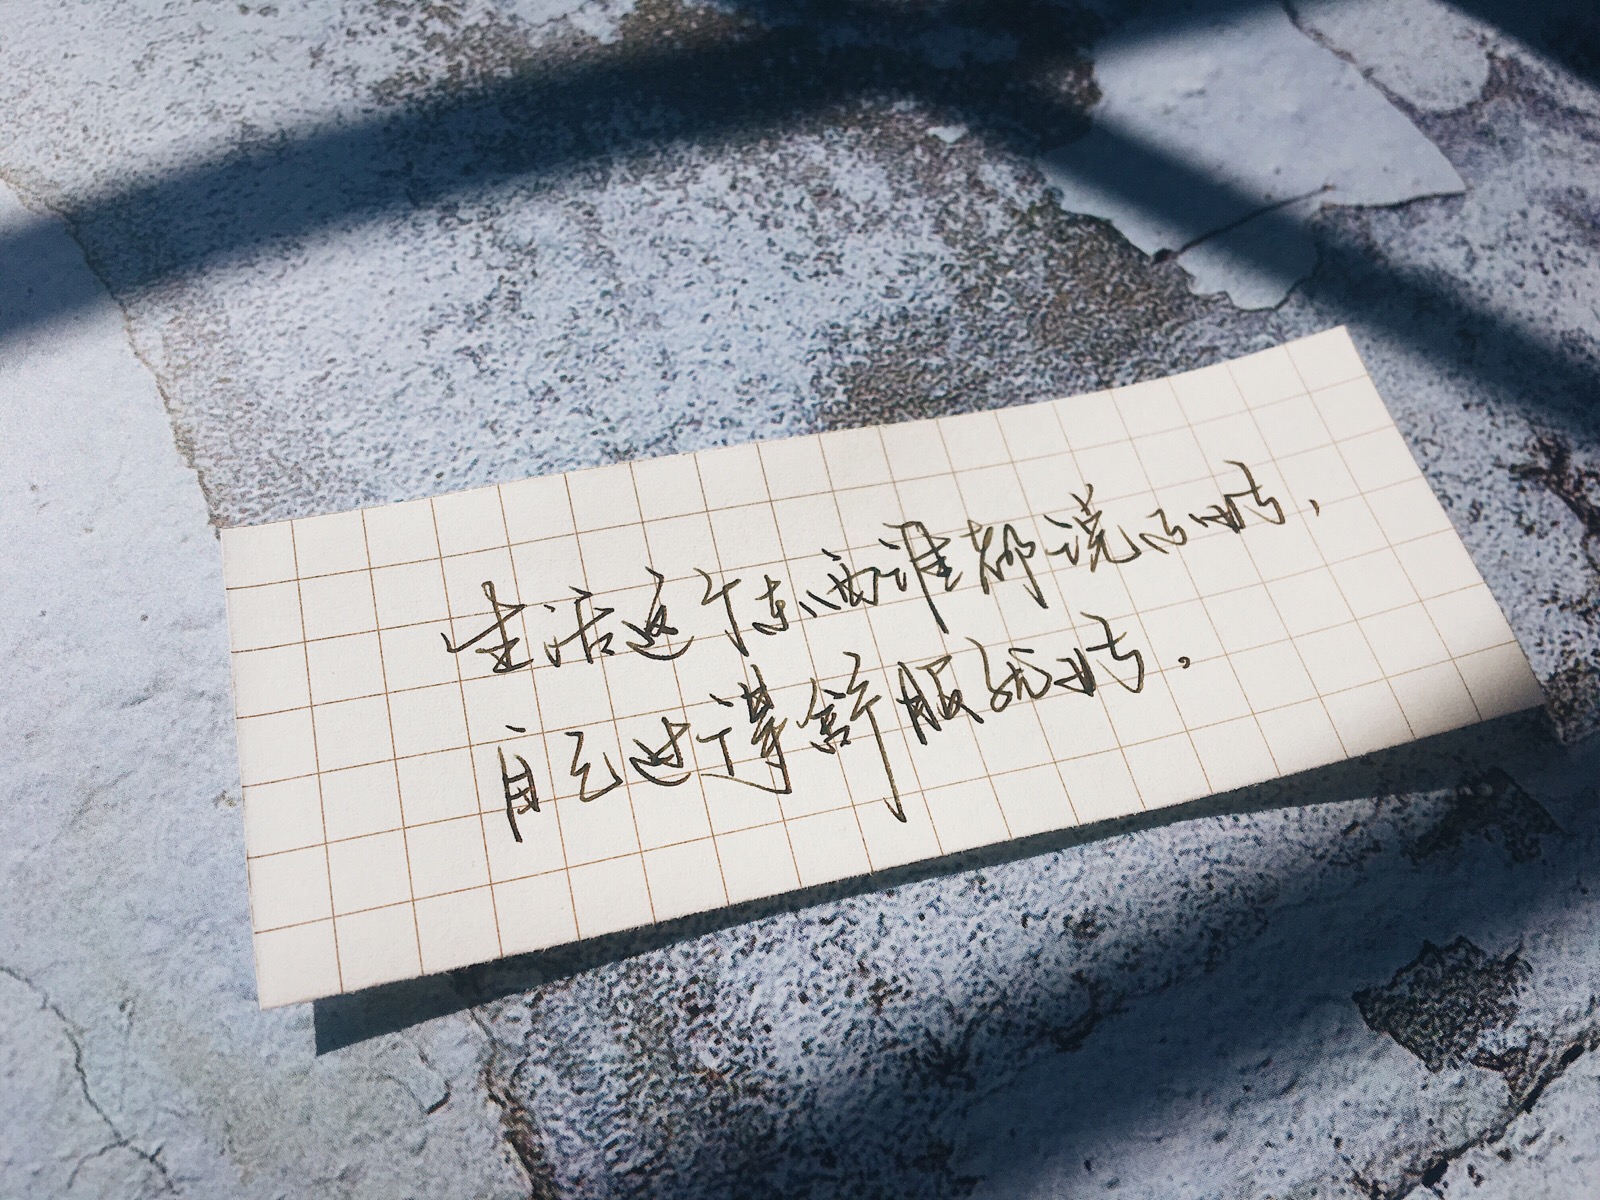 生活这个东西谁都说不明,
自己过得舒服就好。